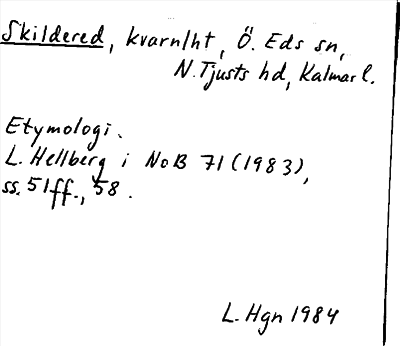 Skildered, kvarnlht, Ö. Eds sn,
N. Tjusts hd, Kalmar l.
Etymologi.
L. Hellberg i NoB 71 (1983),
ss. 51ff., 58.
L. Hgn 1984